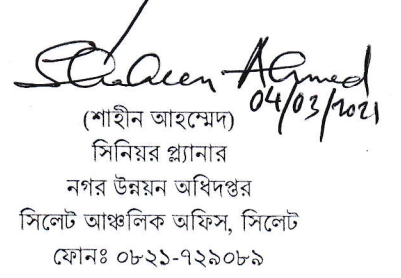 Shaheen Ahmed
04/03/2021
(শাহীন আহম্মেদ)
সিনিয়র প্ল্যানার
নগর উন্নয়ন অধিদপ্তর
সিলেট আঞ্চলিক অফিস, সিলেট
ফোনঃ ০৮২১-৭২৯০৮৯